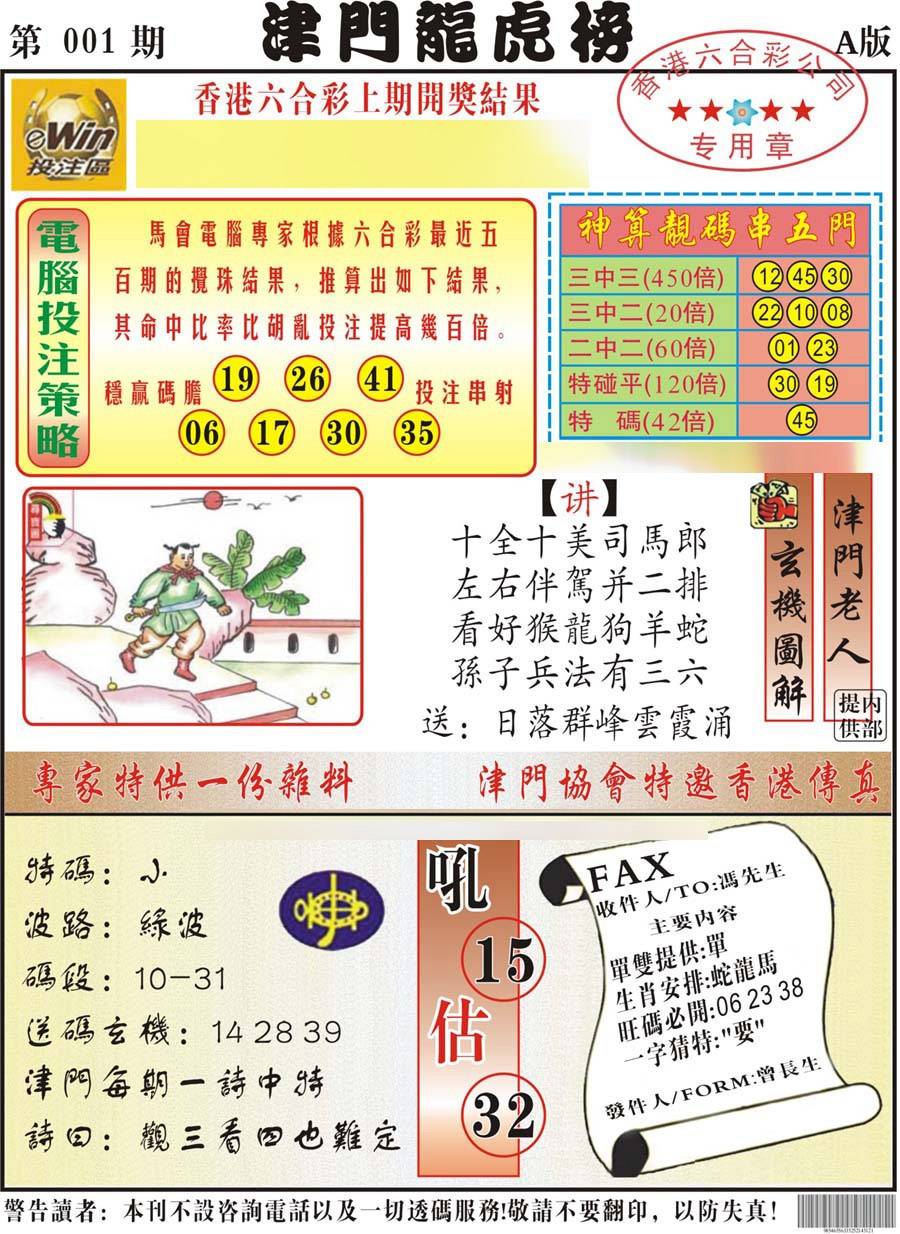 第 001 期
津門龍虎榜
A版
香港六合彩公司
专用章
eWin
投注區
香港六合彩上期開獎結果
電腦投注策略
馬會電腦專家根據六合彩最近五
百期的攪珠結果，推算出如下結果，
其命中比率比胡亂投注提高幾百倍。
穩贏碼膽 19 26 41 投注串射
06 17 30 35
神算靚碼串五門
三中三(450倍) 12 45 30
三中二(20倍) 22 10 08
二中二(60倍) 01 23
特碰平(120倍) 30 19
特 碼(42倍) 45
尋寶圖
【讲】
十全十美司馬郎
左右伴駕并二排
看好猴龍狗羊蛇
孫子兵法有三六
送：日落群峰雲霞涌
玄機圖解
津門老人
内部提供
專家特供一份雜料
津門協會特邀香港傳真
特碼：小
波路：綠波
碼段：10-31
送碼玄機：14 28 39
津門每期一詩中特
詩曰：觀三看四也難定
吼
15
估
32
FAX
收件人/TO:馮先生
主要内容
單雙提供:單
生肖安排:蛇龍馬
旺碼必開:06 23 38
一字猜特:"要"
發件人/FORM:曾長生
警告讀者：本刊不設咨詢電話以及一切透碼服務!敬請不要翻印，以防失真!